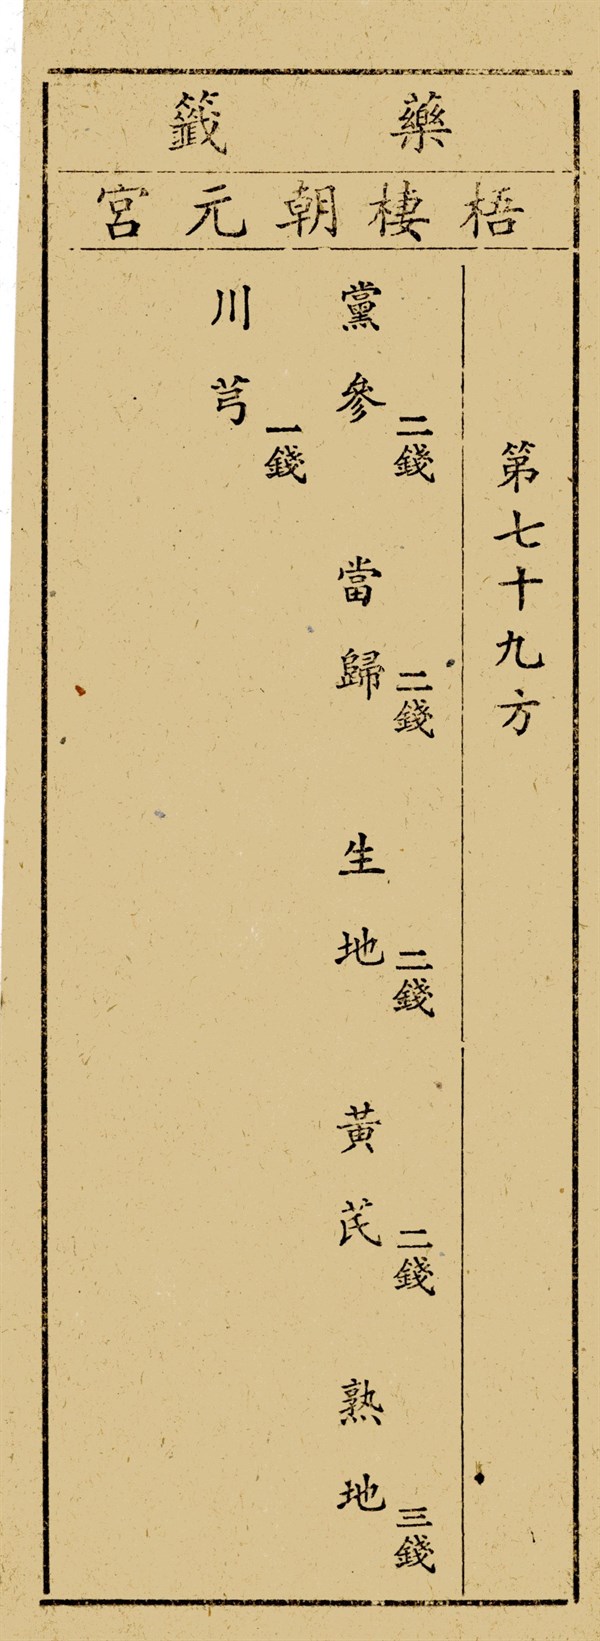 藥籤
梧棲朝元宮
第七十九方
黨參二錢 當歸二錢 生地二錢 黃芪二錢 熟地三錢
川芎一錢